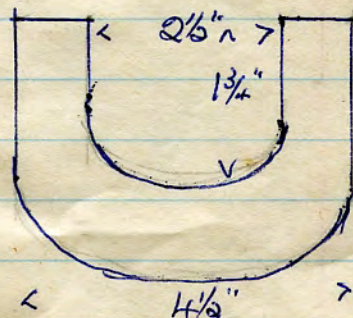 2½"
1¾"
4½"